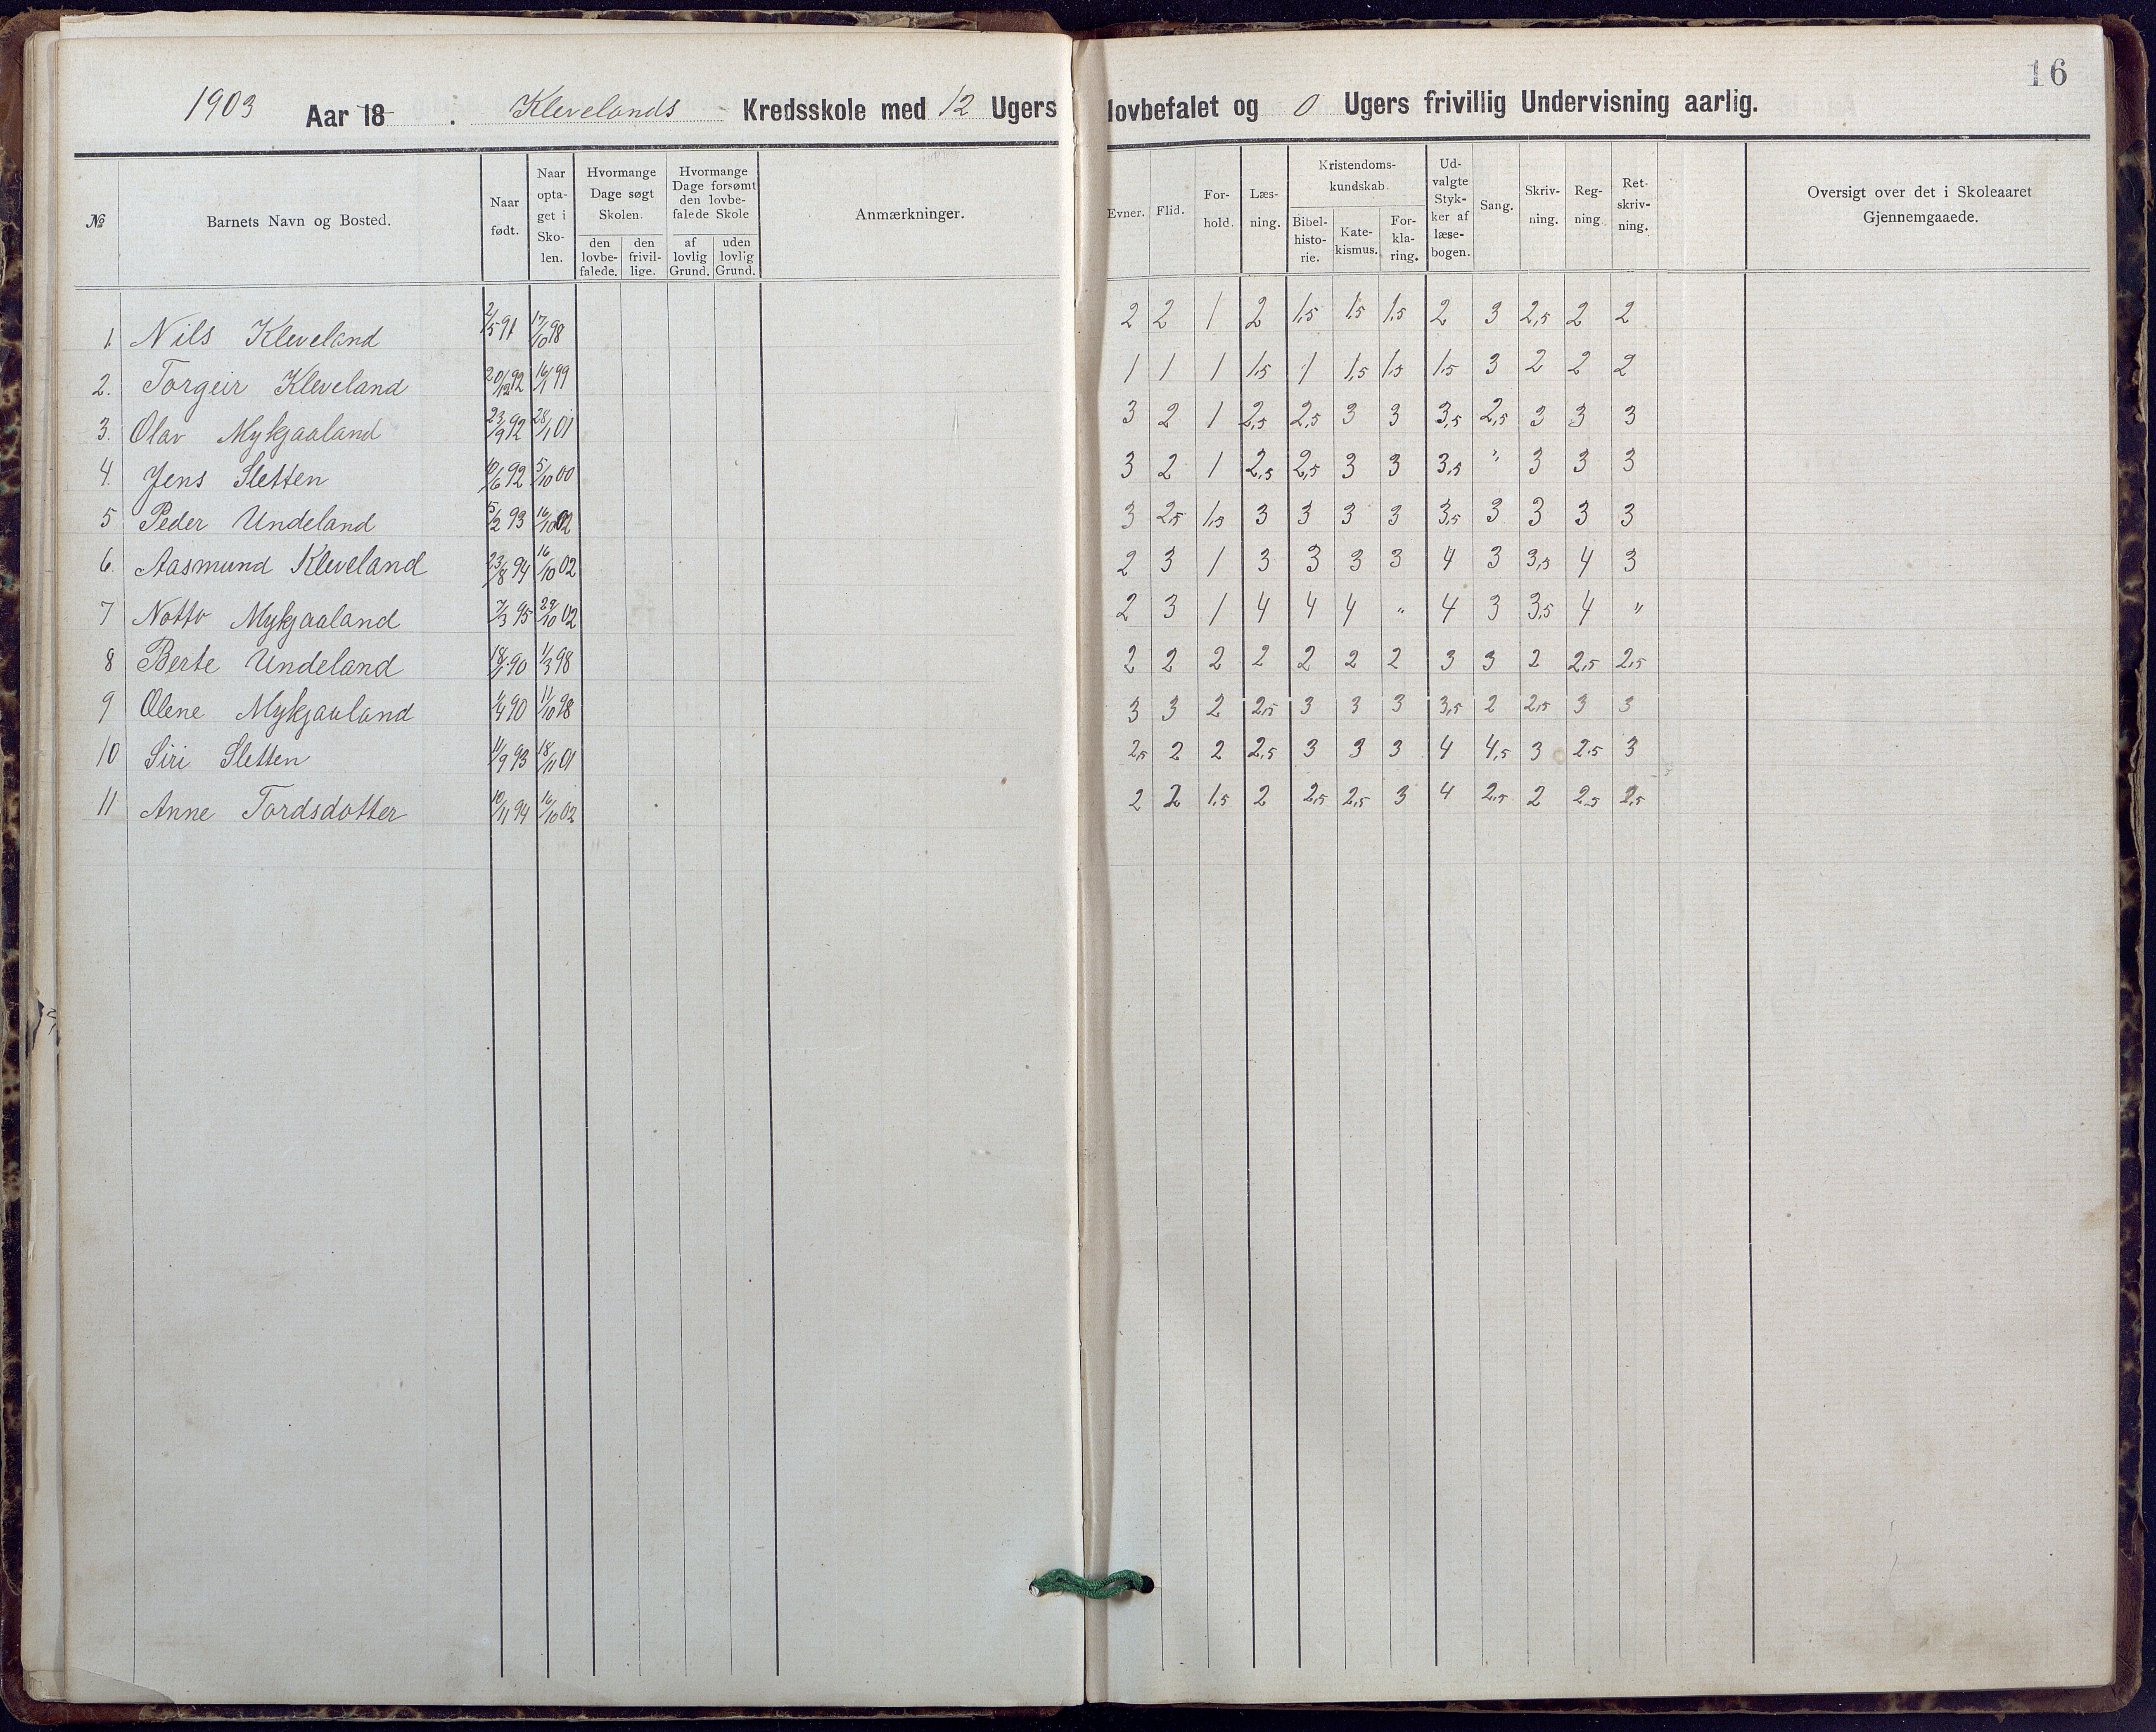 16
1903 Aar 18 . Klevelands Kredsskole med 12 Ugers lovbefalet og 0 Ugers frivillig Undervisning aarlig.
№ Barnets Navn og Bosted. Naar født. Naar optaget i Skolen. Hvormange Dage søgt Skolen. den lovbefalede. den frivillige. Hvormange Dage forsømt den lovbefalede Skole af lovlig Grund. uden lovlig Grund. Anmærkninger. Evner. Flid. Forhold. Læsning. Kristendomskundskab. Bibelhistorie. Katekismus. Forklaring. Udvalgte Stykker af læsebogen. Sang. Skrivning. Regning. Retskrivning. Oversigt over det i Skoleaaret Gjennemgaaede.
1. Nils Kleveland 2/5 91 17/10 98 2 2 1 2 1,5 1,5 1,5 2 3 2,5 2 2
2. Torgeir Kleveland 20/12 92 16/1 99 1 1 1 1,5 1 1,5 1,5 1,5 3 2 2 2
3. Olav Mykjaaland 23/9 92 28/1 01 3 2 1 2,5 2,5 3 3 3,5 2,5 3 3 3
4. Jens Sletten 10/6 92 5/10 00 3 2 1 2,5 2,5 3 3 3,5 " 3 3 3
5 Peder Undeland 5/2 93 16/10 02 3 2,5 1,5 3 3 3 3 3,5 3 3 3 3
6. Aasmund Kleveland 23/8 94 16/10 02 2 3 1 3 3 3 3 4 3 3,5 4 3
7 Notto Mykjaaland 7/3 95 29/10 02 2 3 1 4 4 4 " 4 3 3,5 4 "
8 Berte Undeland 18/1 90 1/3 98 2 2 2 2 2 2 2 3 3 2 2,5 2,5
9 Olene Mykjaaland 1/4 90 11/10 98 3 3 2 2,5 3 3 3 3,5 2 2,5 3 3
10 Siri Sletten 11/9 93 18/11 01 2,5 2 2 2,5 3 3 3 4 4,5 3 2,5 3
11 Anne Tordsdotter 10/11 94 16/10 02 2 2 1,5 2 2,5 2,5 3 4 2,5 2 2,5 2,5